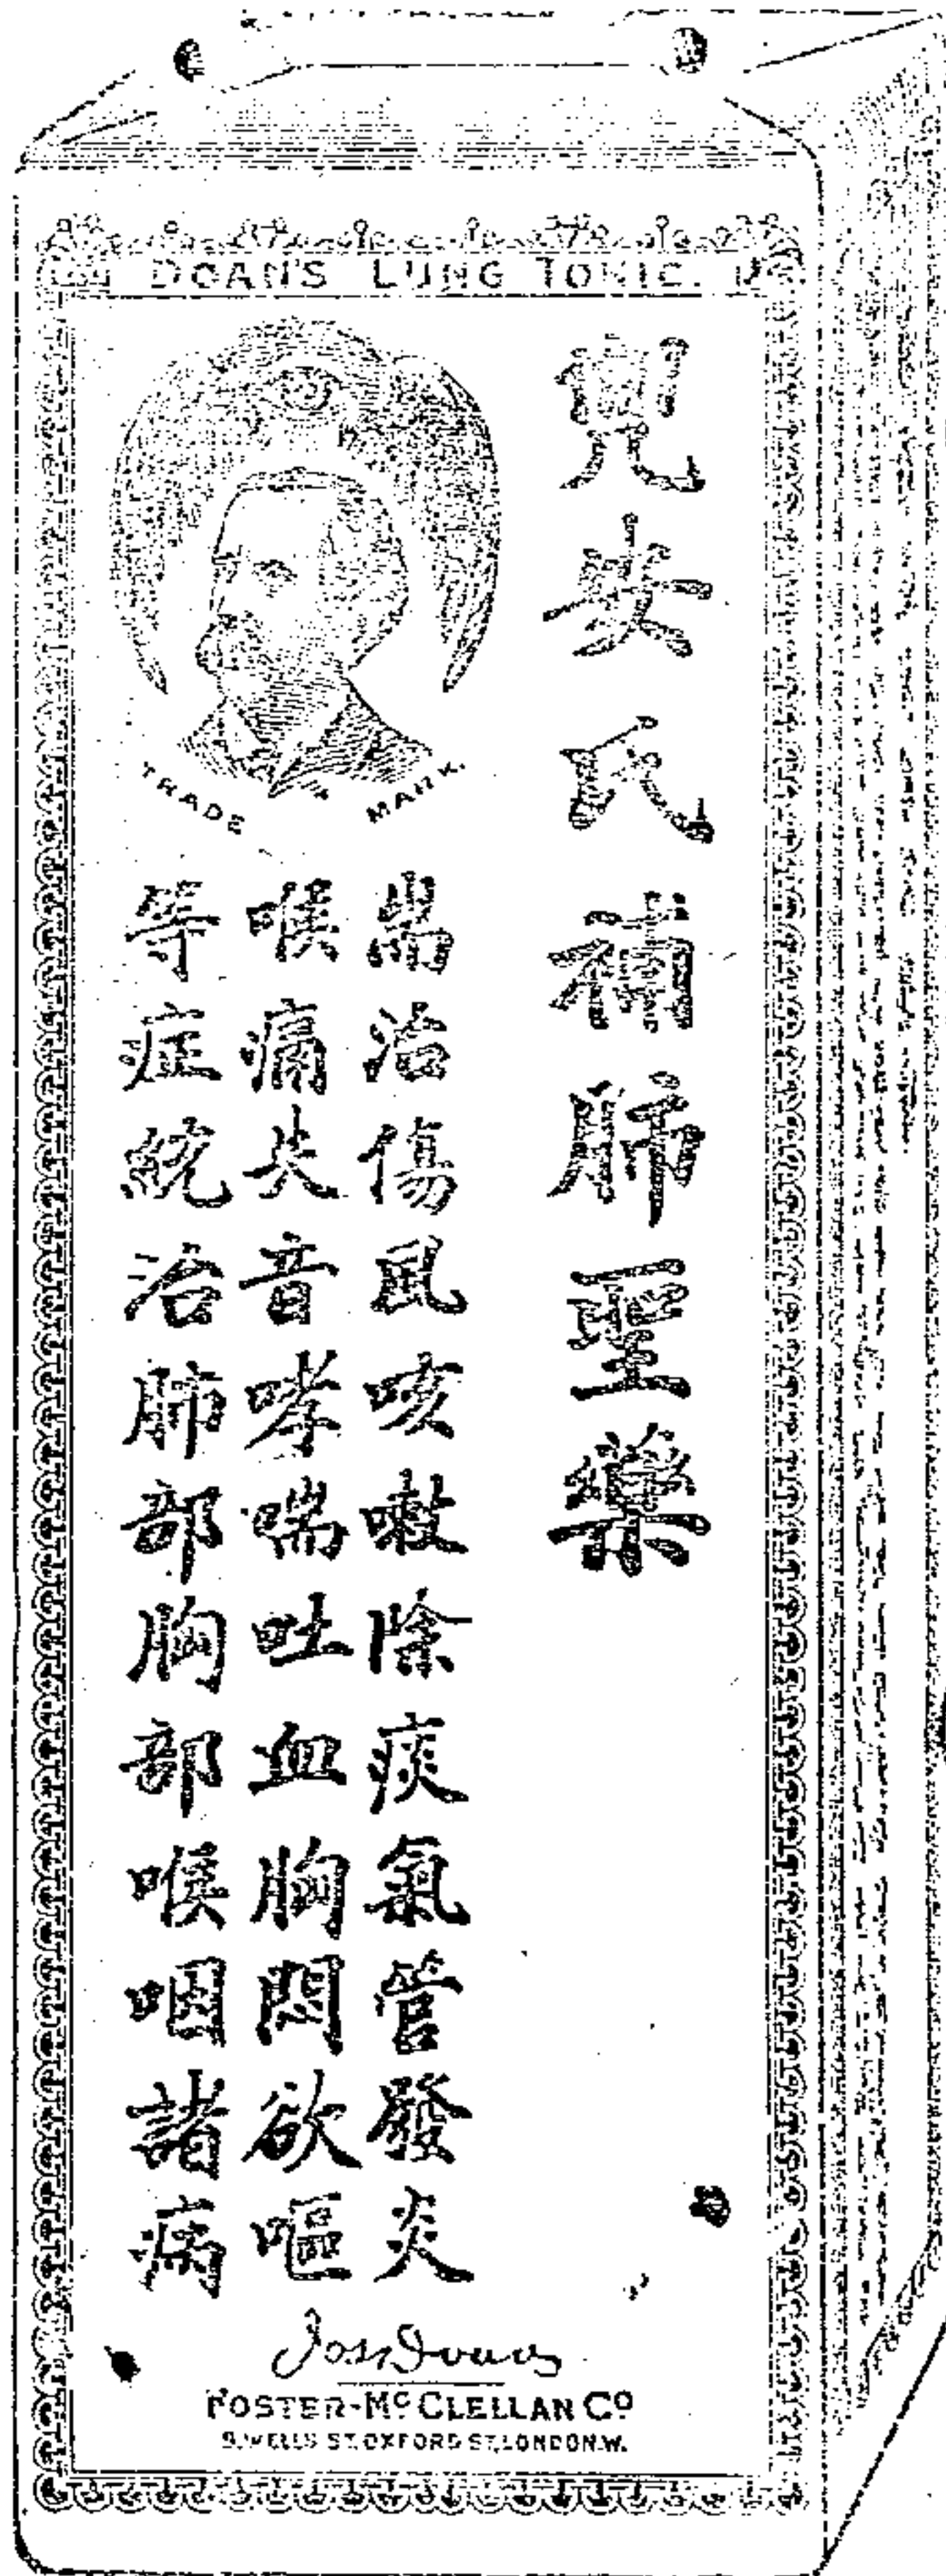 DOAN'S LUNG TONIC.
兜安氏補肺聖藥
TRADE MARK.
專治傷風咳嗽除痰氣管發炎
喉痛失音哮喘吐血胸悶欲嘔
等症統治肺部胸部喉咽諸病
Jos Doan
FOSTER-MCCLELLAN CO
8, WELLS ST. OXFORD ST, LONDON.W.